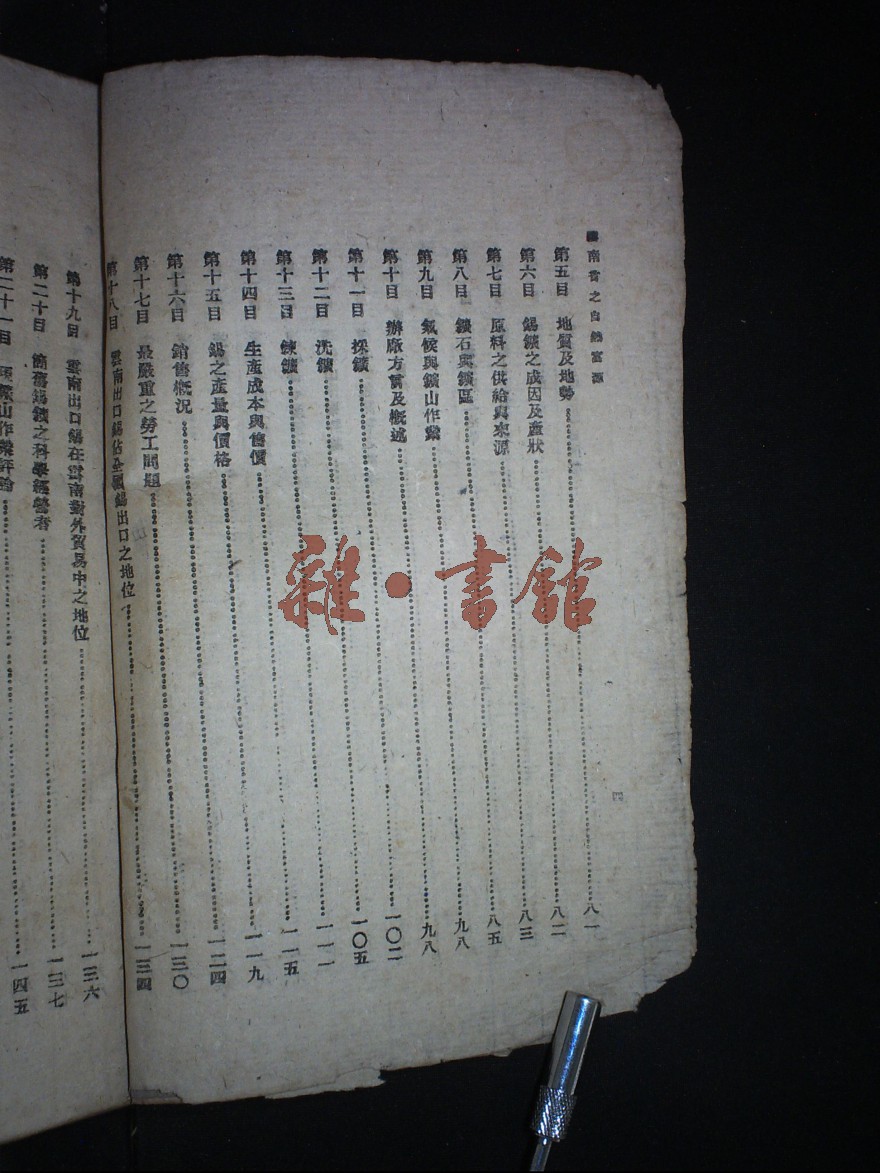 南省之自然富源
四
第五目　地質及地勢……八一
第六目　錫鑛之成因及產狀……八二
第七目　原料之供給與來源……八三
第八目　鑛石與鑛區……八五
第九目　氣候與鑛山作業……九八
第十目　辦廠方及概述……九八
第十一目　採鑛……一〇二
第十二目　洗鑛……一〇五
第十三目　鍊鑛……一一一
第十四目　生產成本與售價……一一五
第十五目　錫之產量與價格……一一九
第十六目　銷售概況……一二四
第十七目　最嚴重之勞工問題……一三〇
第十八目　雲南出口錫佔全國錫出口之地位……一三四
第十九目　雲南出口錫在雲南對外貿易中之地位……一三六
第二十目　箇舊錫鑛之科學經營者……一三七
第二十一目　鑛山作業評論……一四五
雜·書館